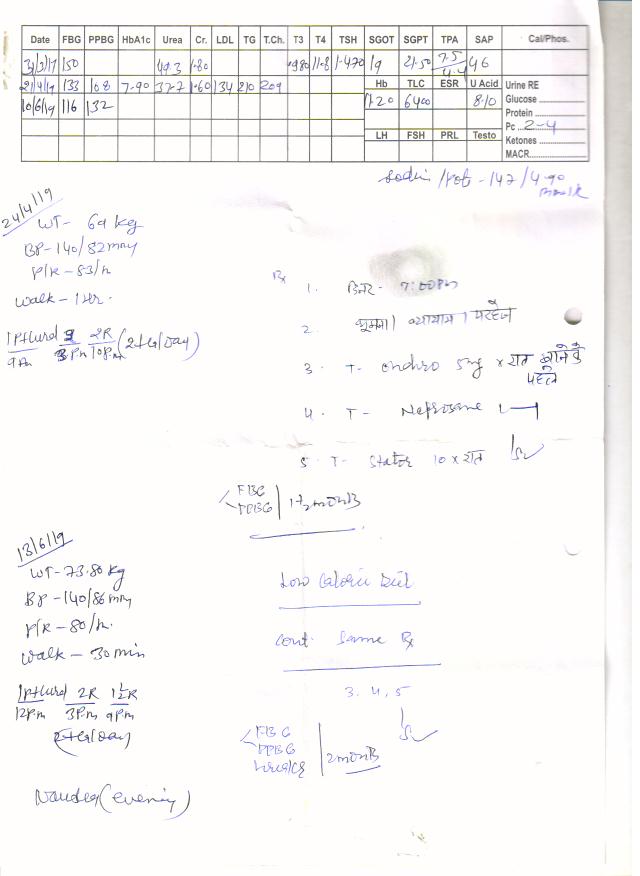 Date FBG PPBG HbA1c Urea Cr. LDL TG T.Ch. T3 T4 TSH SGOT SGPT TPA SAP Cal/Phos.
150 49.3 1.80 .980 11.8 1.470 19 21.50 7.5/4.4 46
21/4/19 133 108 7.90 37.7 1.60 134 210 209
Hb TLC ESR U Acid Urine RE
10/6/19 116 132 6400 8.10 Glucose
Protein
Pc 2-4
LH FSH PRL Testo Ketones
MACR
147/4.90
24/4/19
WT- 69 kg
BP-140/82mmy
P/R-83/h
Walk-1Hr.
2R
9Am 3Pm 10Pm (2+G/Day)
Rx
1. डिनर- 7:00Pm
2. घूमना। व्यायाम। परहेज
3. T- ondero 5mg x रात खाने से पहले
4. T- Nefrosave 1—1
5. T- Stator 10 x रात
FBG
PPBG 1½ month
13/6/19
WT-73.80 kg
BP-140/86 mmy
P/R-80/h.
Walk-30min
Low Calorie Diet
Cont. Same Rx
3. 4, 5
1P+Curd 2R 1½R
12Pm 3Pm 9Pm
2+G/Day
FBG
PPBG
Urea/Cr
2 month
Nausea (evening)